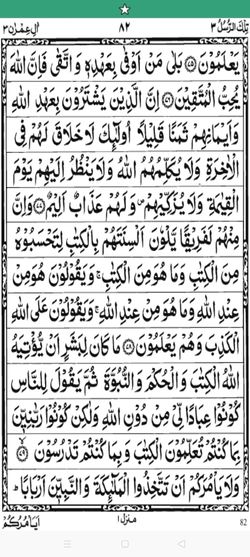 تِلْكَ الرُّسُلُ ٣ ٨٢ اٰلِ عِمْرٰن ٣
يَعْلَمُوْنَ ﴿٧٥﴾ بَلٰى مَنْ اَوْفٰى بِعَهْدِهٖ وَاتَّقٰى فَاِنَّ اللّٰهَ
يُحِبُّ الْمُتَّقِيْنَ ﴿٧٦﴾ اِنَّ الَّذِيْنَ يَشْتَرُوْنَ بِعَهْدِ اللّٰهِ
وَاَيْمَانِهِمْ ثَمَنًا قَلِيْلًا اُولٰٓئِكَ لَا خَلَاقَ لَهُمْ فِى
الْاٰخِرَةِ وَلَا يُكَلِّمُهُمُ اللّٰهُ وَلَا يَنْظُرُ اِلَيْهِمْ يَوْمَ
الْقِيٰمَةِ وَلَا يُزَكِّيْهِمْ ۪ وَلَهُمْ عَذَابٌ اَلِيْمٌ ﴿٧٧﴾ وَاِنَّ
مِنْهُمْ لَفَرِيْقًا يَّلْوٗنَ اَلْسِنَتَهُمْ بِالْكِتٰبِ لِتَحْسَبُوْهُ
مِنَ الْكِتٰبِ وَمَا هُوَ مِنَ الْكِتٰبِ ۚ وَيَقُوْلُوْنَ هُوَ مِنْ
عِنْدِ اللّٰهِ وَمَا هُوَ مِنْ عِنْدِ اللّٰهِ ۚ وَيَقُوْلُوْنَ عَلَى اللّٰهِ
الْكَذِبَ وَهُمْ يَعْلَمُوْنَ ﴿٧٨﴾ مَا كَانَ لِبَشَرٍ اَنْ يُّؤْتِيَهُ
اللّٰهُ الْكِتٰبَ وَالْحُكْمَ وَالنُّبُوَّةَ ثُمَّ يَقُوْلَ لِلنَّاسِ
كُوْنُوْا عِبَادًا لِّىْ مِنْ دُوْنِ اللّٰهِ وَلٰكِنْ كُوْنُوْا رَبّٰنِيّٖنَ
بِمَا كُنْتُمْ تُعَلِّمُوْنَ الْكِتٰبَ وَبِمَا كُنْتُمْ تَدْرُسُوْنَ ﴿٧٩﴾
وَلَا يَاْمُرَكُمْ اَنْ تَتَّخِذُوا الْمَلٰٓئِكَةَ وَالنَّبِيّٖنَ اَرْبَابًا ؕ
منزل ١ اَيَاْمُرُكُمْ
82